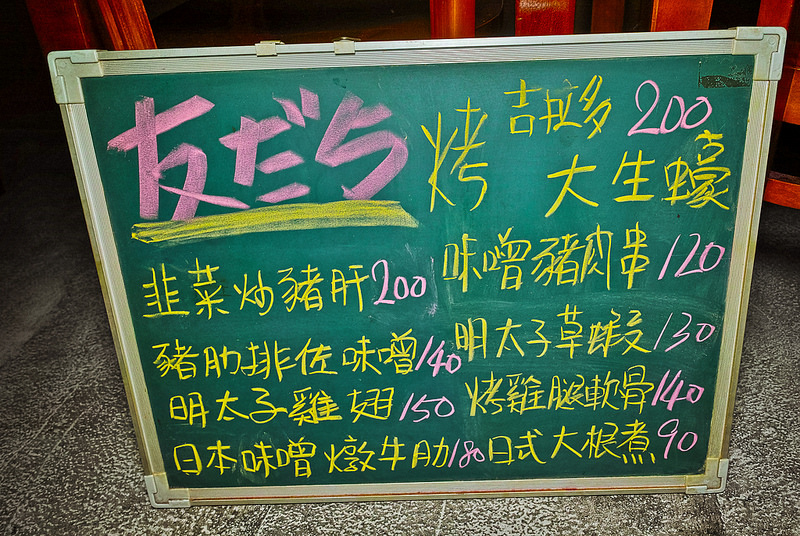 友だち
烤 吉拉多 200
大生蠔
韭菜炒豬肝200
味噌豬肉串120
豬肋排佐味噌140
明太子草蝦130
明太子雞翅150
烤雞腿軟骨140
日本味噌燉牛肋180
日式大根煮90